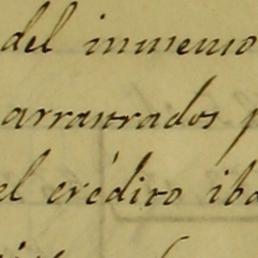 del inmenso
arrastrados p
el crédito iba